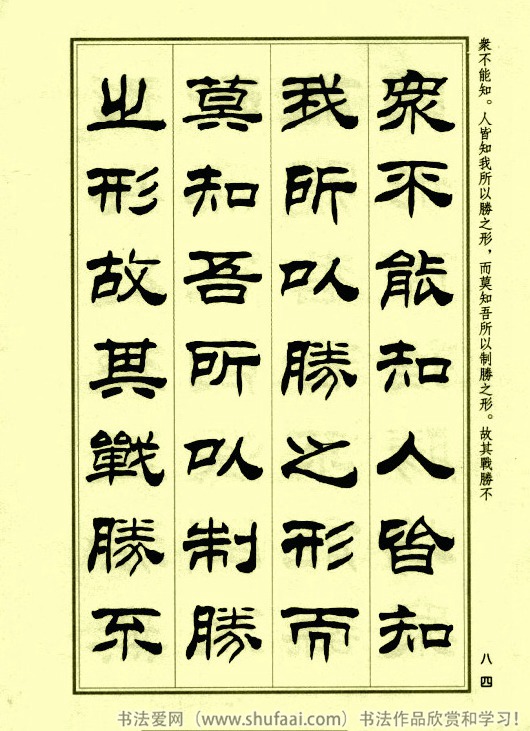 衆不能知。人皆知我所以勝之形，而莫知吾所以制勝之形。故其戰勝不
衆不能知人皆知
我所以勝之形而
莫知吾所以制勝
之形故其戰勝不
八四
书法爱网（www.shufaai.com）书法作品欣赏和学习！